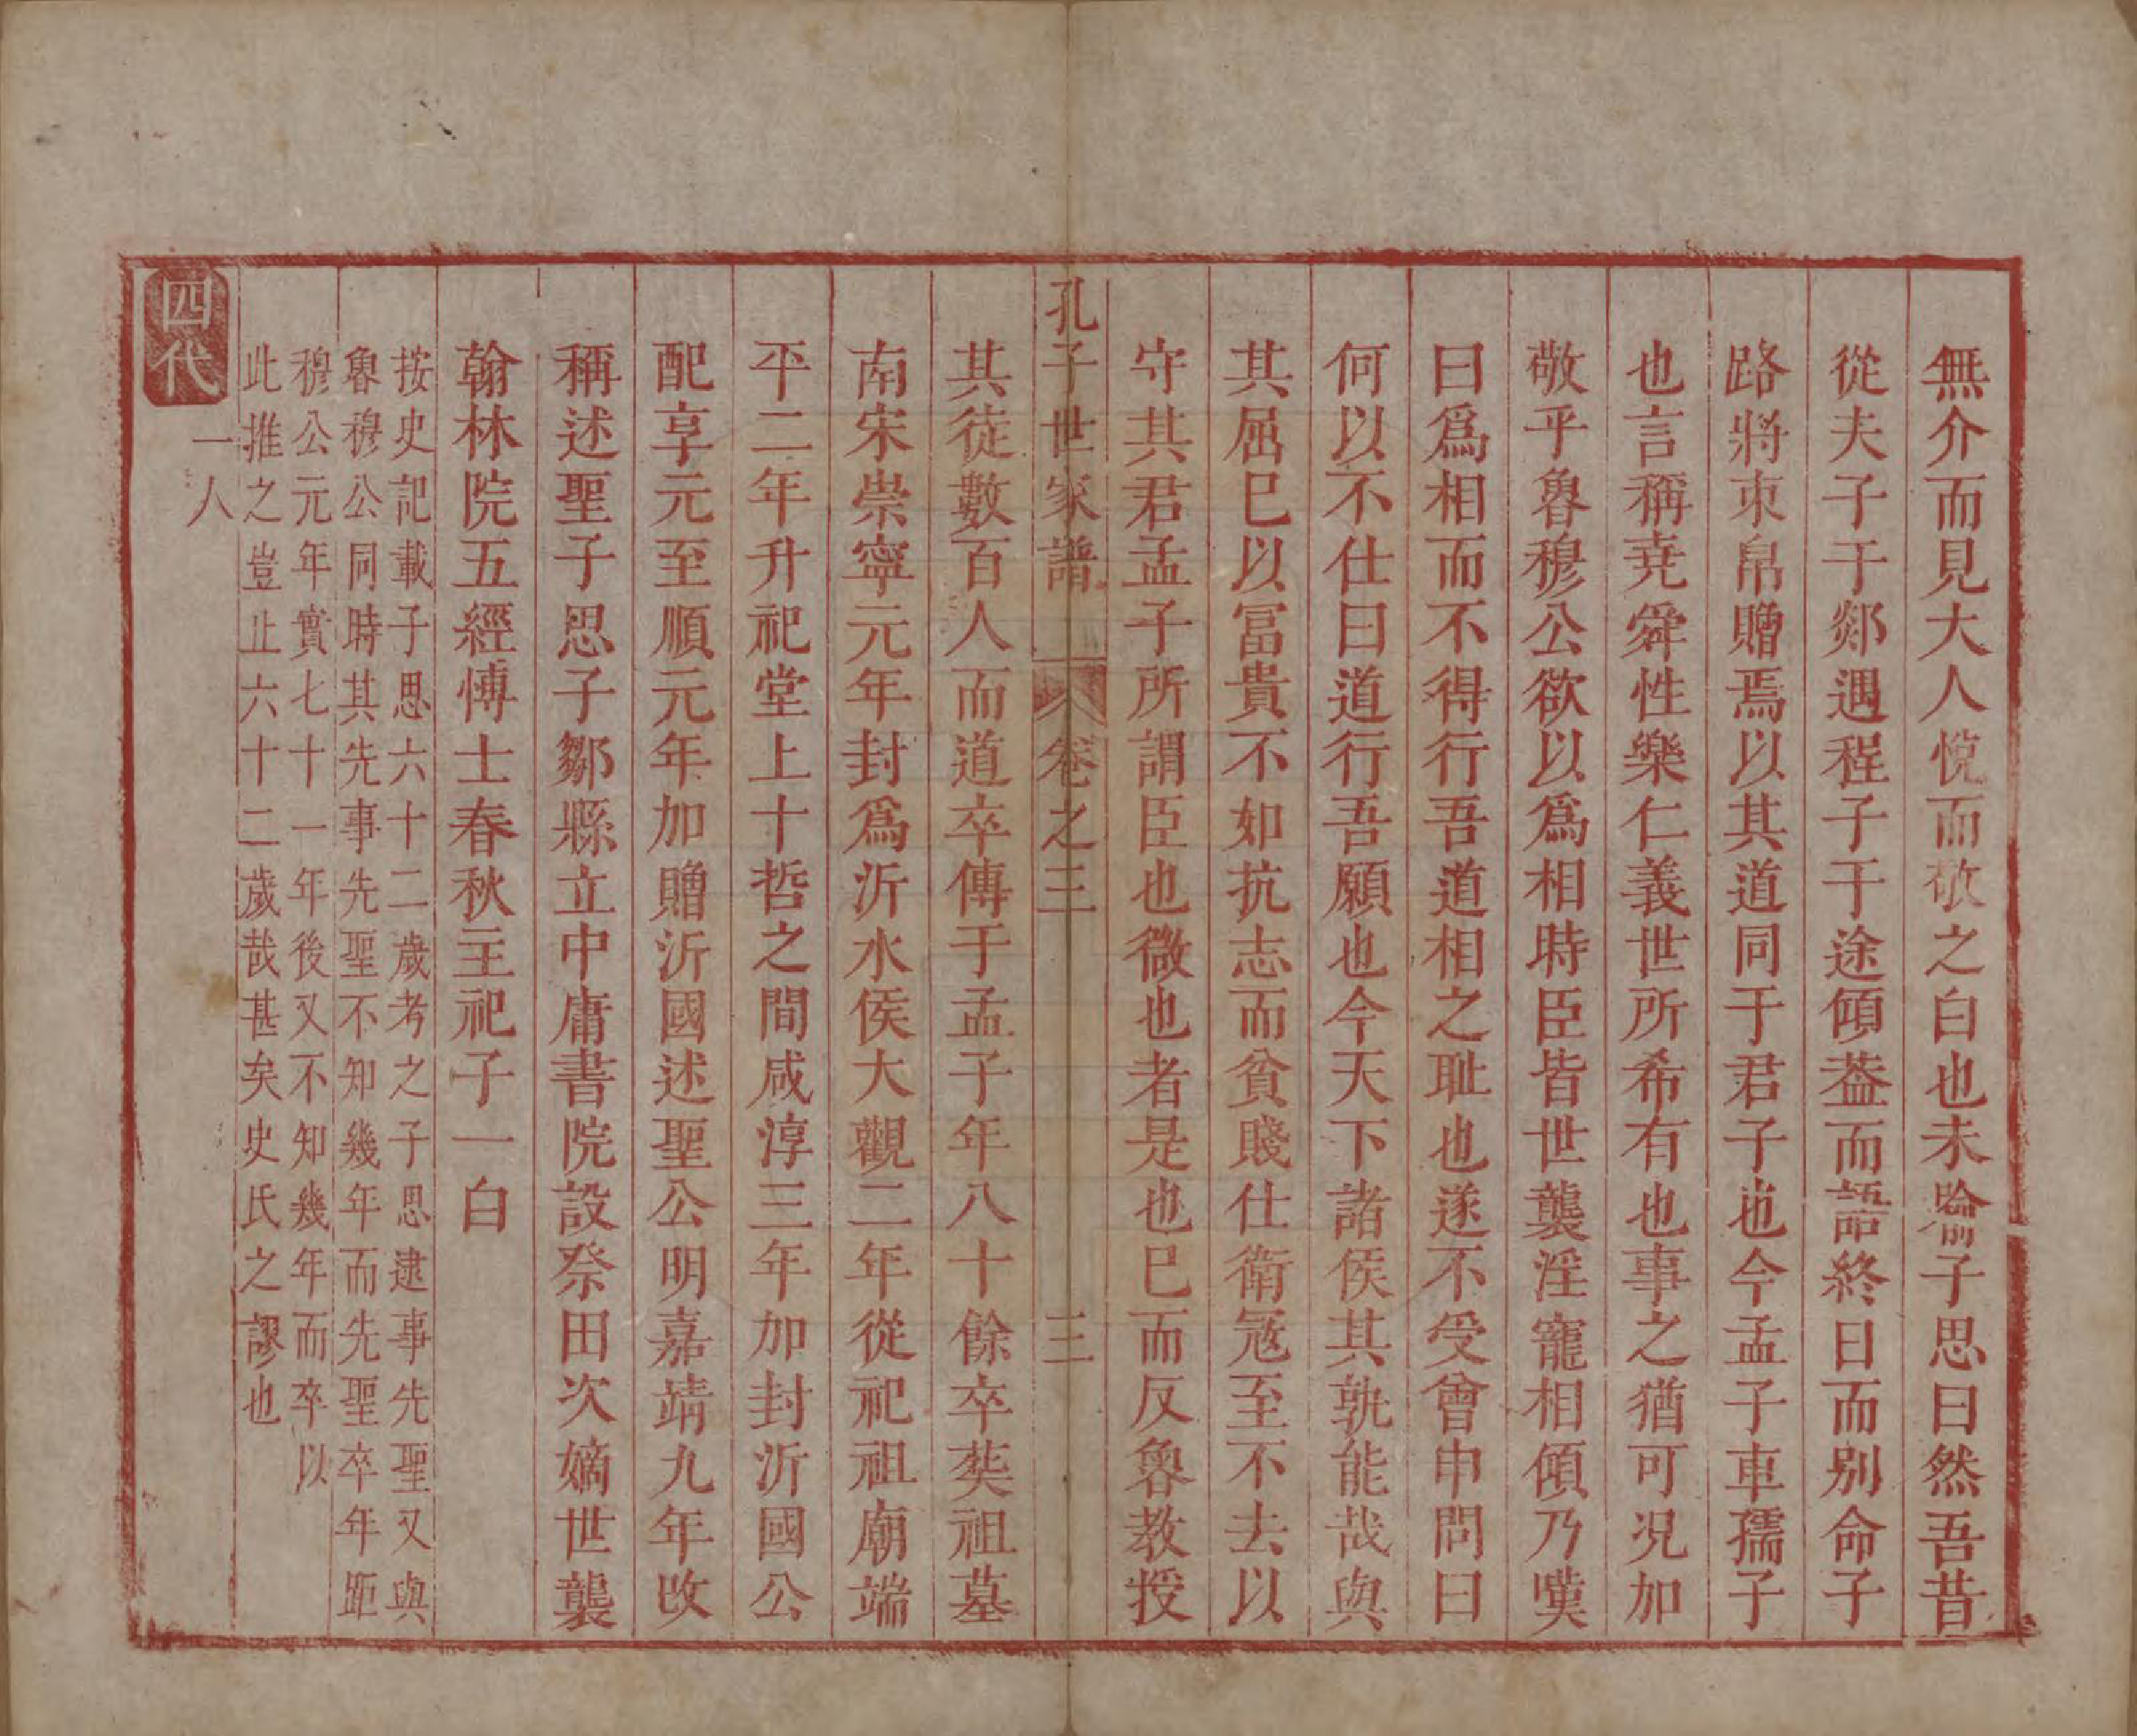 無介而見大人悅而敬之白也未喻子思曰然吾昔
從夫子于郯遇程子于途傾葢而語終日而別命子
路將束帛贈焉以其道同于君子也今孟子車孺子
也言稱堯舜性樂仁義世所希有也事之猶可况加
敬乎魯穆公欲以爲相時臣皆世襲淫寵相傾乃嘆
曰爲相而不得行吾道相之耻也遂不受曾申問曰
何以不仕曰道行吾願也今天下諸侯其孰能哉與
其屈巳以冨貴不如抗志而貧賤仕衛冦至不去以
守其君孟子所謂臣也微也者是也巳而反魯教授
孔子世家譜 卷之三 三
其徒數百人而道卒傳于孟子年八十餘卒葬祖墓
南宋崇寧元年封爲沂水侯大觀二年從祀祖廟端
平二年升祀堂上十哲之間咸淳三年加封沂國公
配享元至順元年加贈沂國述聖公明嘉靖九年改
稱述聖子思子鄒縣立中庸書院設祭田次嫡世襲
翰林院五經博士春秋主祀子一白
按史記載子思六十二歲考之子思逮事先聖又與
魯穆公同時其先事先聖不知幾年而先聖卒年距
穆公元年實七十一年後又不知幾年而卒以
此推之豈止六十二歲哉甚矣史氏之謬也
四代
一人